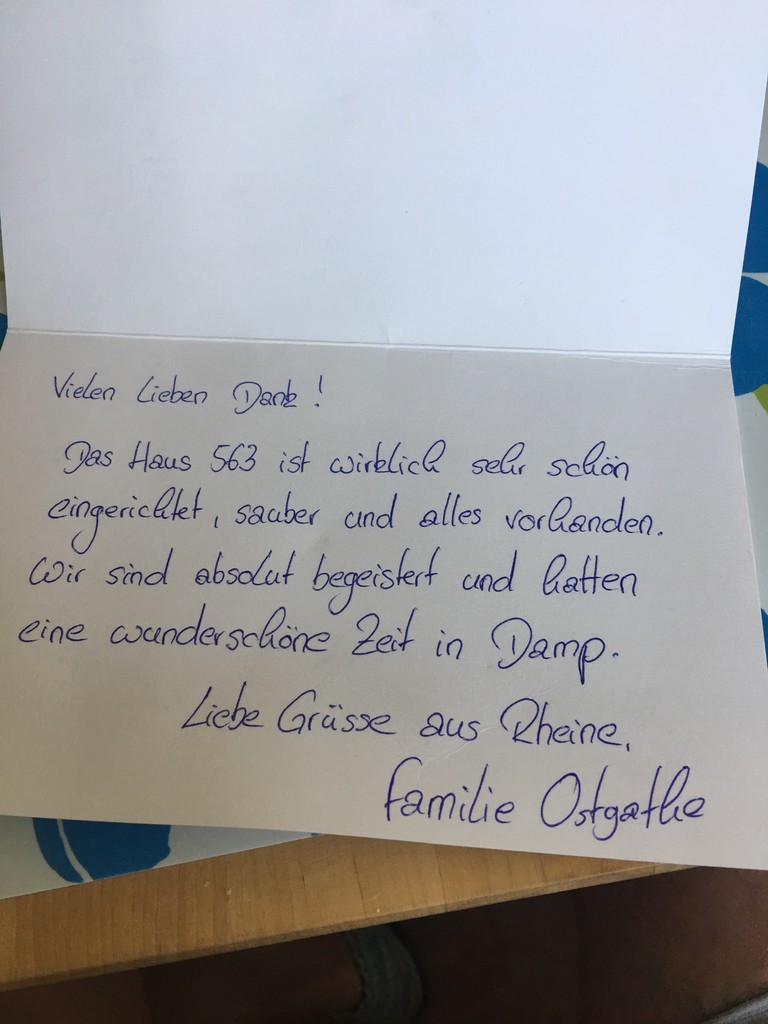 Vielen Lieben Dank!
Das Haus 563 ist wirklich sehr schön
eingerichtet, sauber und alles vorhanden.
Wir sind absolut begeistert und hatten
eine wunderschöne Zeit in Damp.
Liebe Grüsse aus Rheine,
Familie Ostgathe